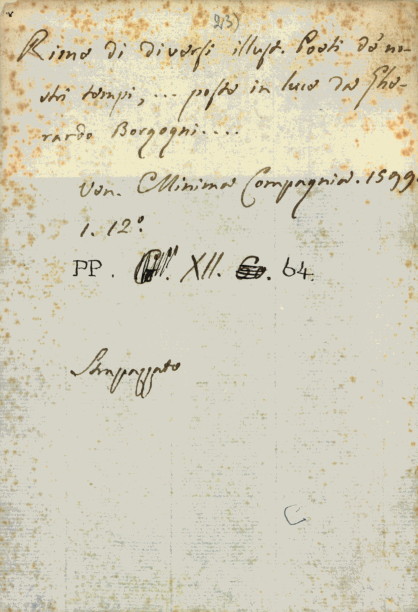 213)
Rime di diversi illust. Poeti de' no-
stri tempi, ... poste in luce da Ghe-
rardo Borgogni....
Ven. Minima Compagnia. 1599.
1. 12.°
PP. XII. 64.
Strapazzato